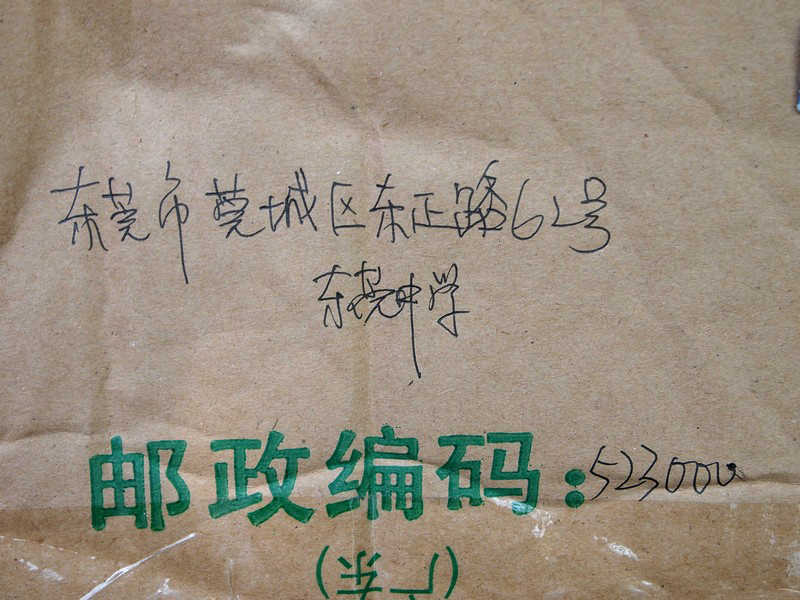 东莞市莞城区东正路62号
东莞中学
邮政编码:523000
(广东